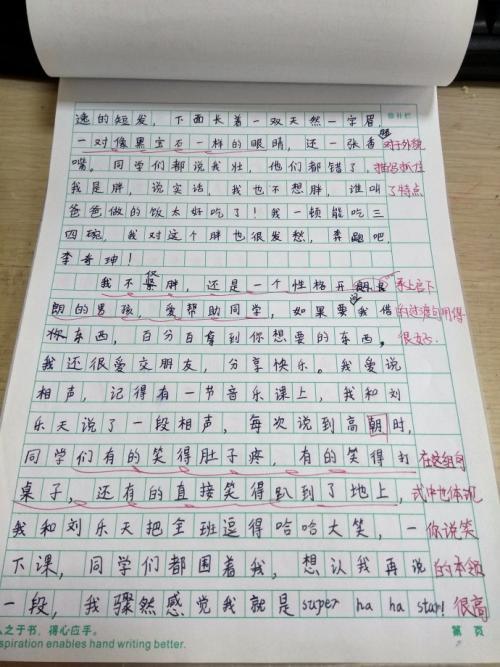 修补栏
逸的短发，下面长着一双天然一字眉，
一对像黑宝石一样的眼睛，还一张香 对于外貌
嘴。同学们都说我壮，他们都错了，
我是胖，说实话，我也不想胖，谁叫 了特点
爸爸做的饭太好吃了！我一顿能吃三
四碗，我对这个胖也很发愁，奔跑吧，
李奇珅！
我不仅胖，还是一个性格开朗 承上启下
朗的男孩，爱帮助同学，如果要我借 的过渡句用得
你东西，百分百拿到你想要的东西， 很好.
我还很爱交朋友，分享快乐。我爱说
相声，记得有一节音乐课上，我和刘
乐天说了一段相声，每次说到高朝时，
同学们有的笑得肚子疼，有的笑得打 在这组句
桌子，还有的直接笑得趴到了地上， 式中也体现
我和刘乐天把全班逗得哈哈大笑，一 你说笑
下课，同学们都围着我，想认我再说 的本领
一段，我骤然感觉我就是super ha ha star! 很高
之于书，得心应手。 第 页
spiration enables hand writing better.